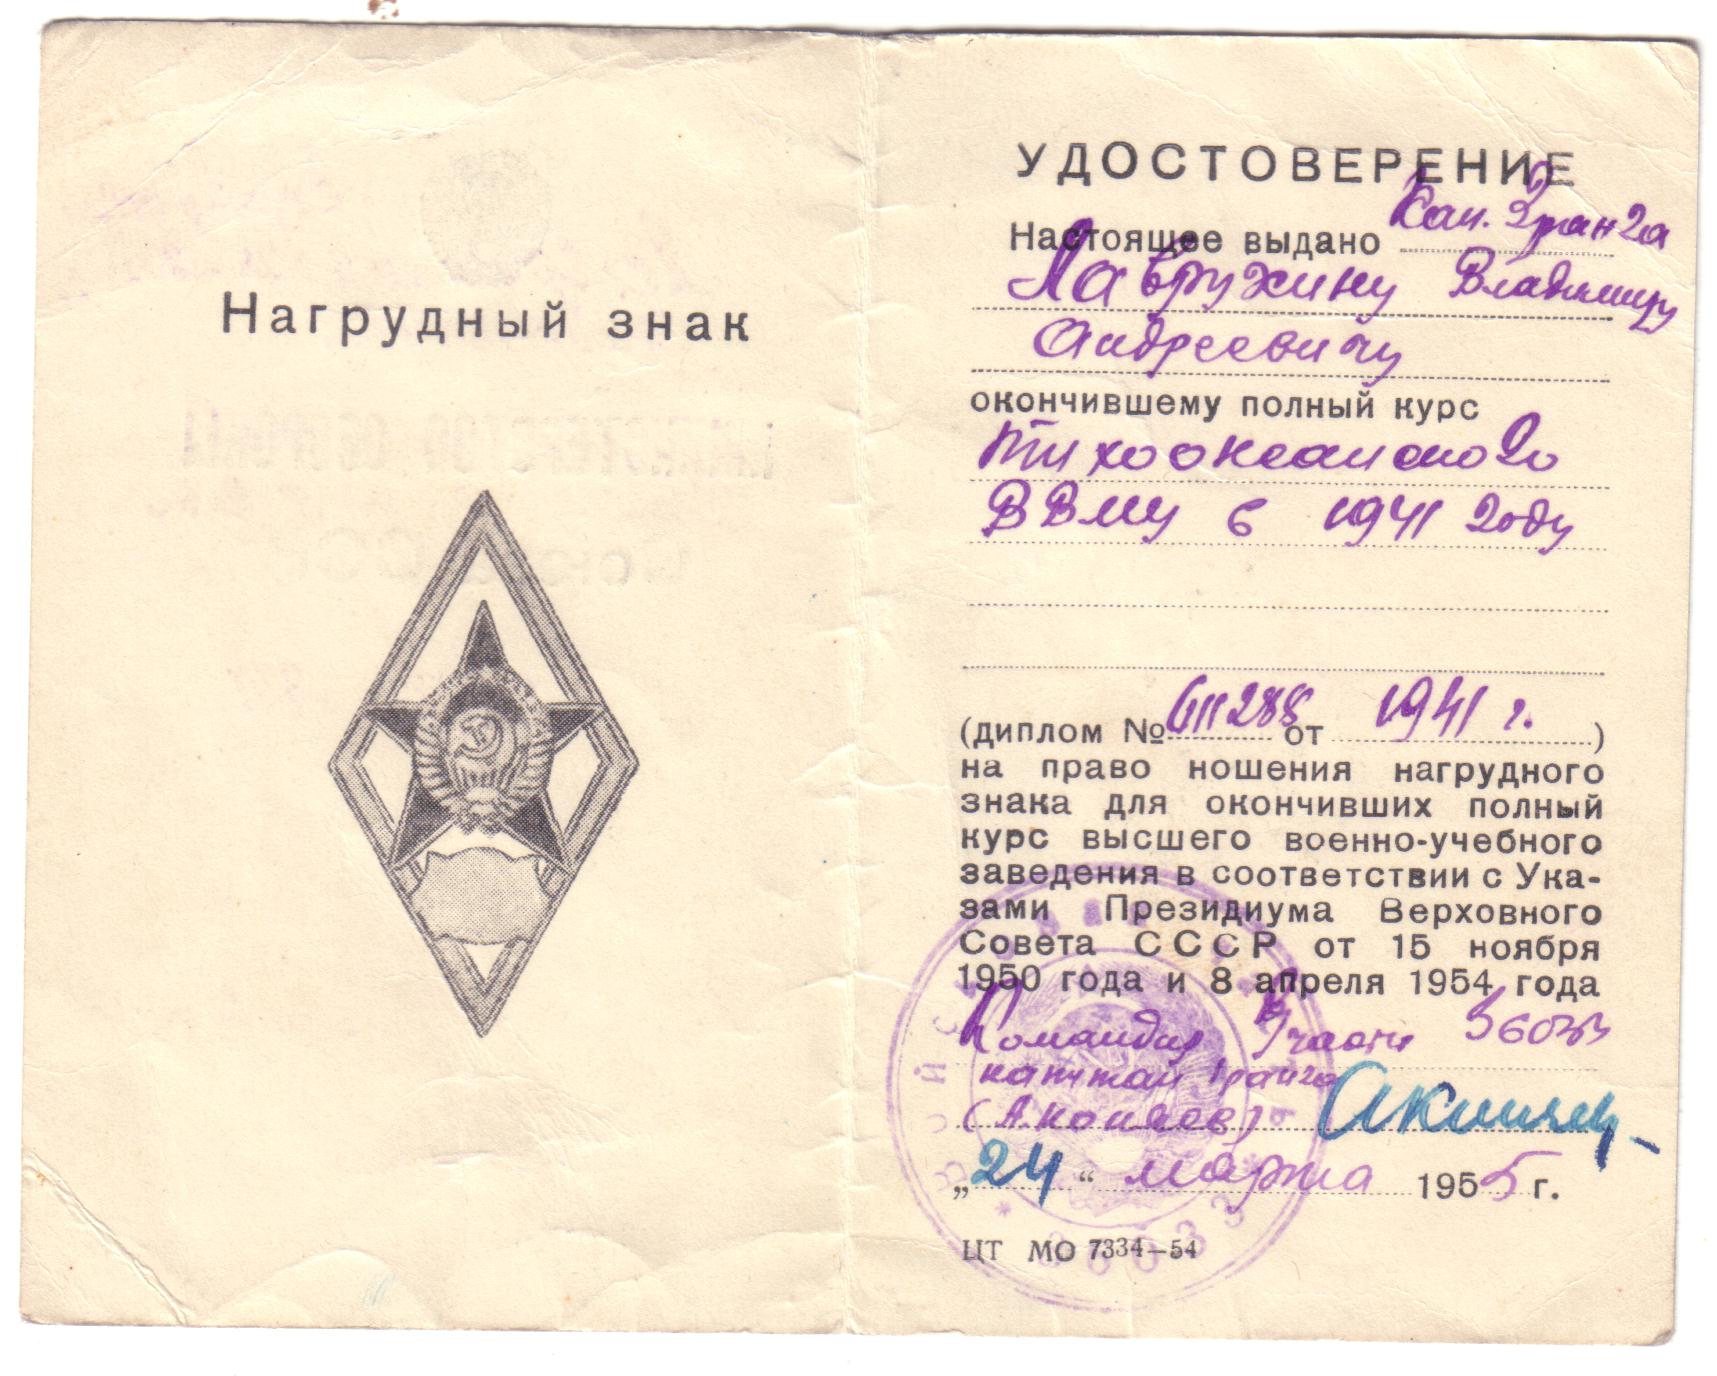 Нагрудный знак
УДОСТОВЕРЕНИЕ
Настоящее выдано Кап. 3 ранга
Лаврухину Владимиру
Андреевичу
окончившему полный курс
Тихоокеанского
ВВМУ в 1941 году
(диплом № 611288 от 1941 г.)
на право ношения нагрудного
знака для окончивших полный
курс высшего военно-учебного
заведения в соответствии с Ука-
зами Президиума Верховного
Совета СССР от 15 ноября
1950 года и 8 апреля 1954 года
Командир В/части 36033
капитан 1 ранга
„24“ марта 1955 г.
ЦТ МО 7334—54